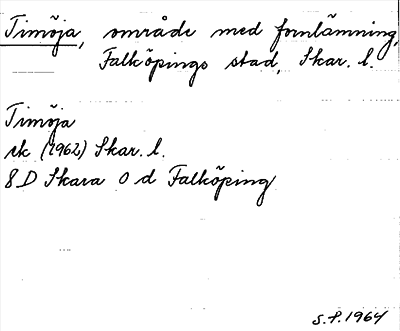 Timöja, område med fornlämning,
Falköpings stad, Skar. l.
Timöja
ek (1962) Skar. l.
8D Skara 0 d Falköping
S.P. 1964